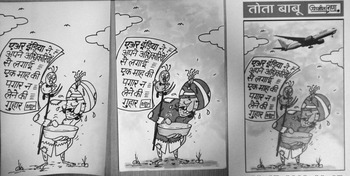 एअर इंडिया ने
अपने अधिकारियों
से लगाई
एक माह की
पगार न
लेने की
गुहार
एअर इंडिया ने
अपने अधिकारियों
से लगाई
एक माह की
पगार न
लेने की
गुहार
तोता बाबू
एअर इंडिया ने
अपने अधिकारियों
से लगाई
एक माह की
पगार न
लेने की
गुहार